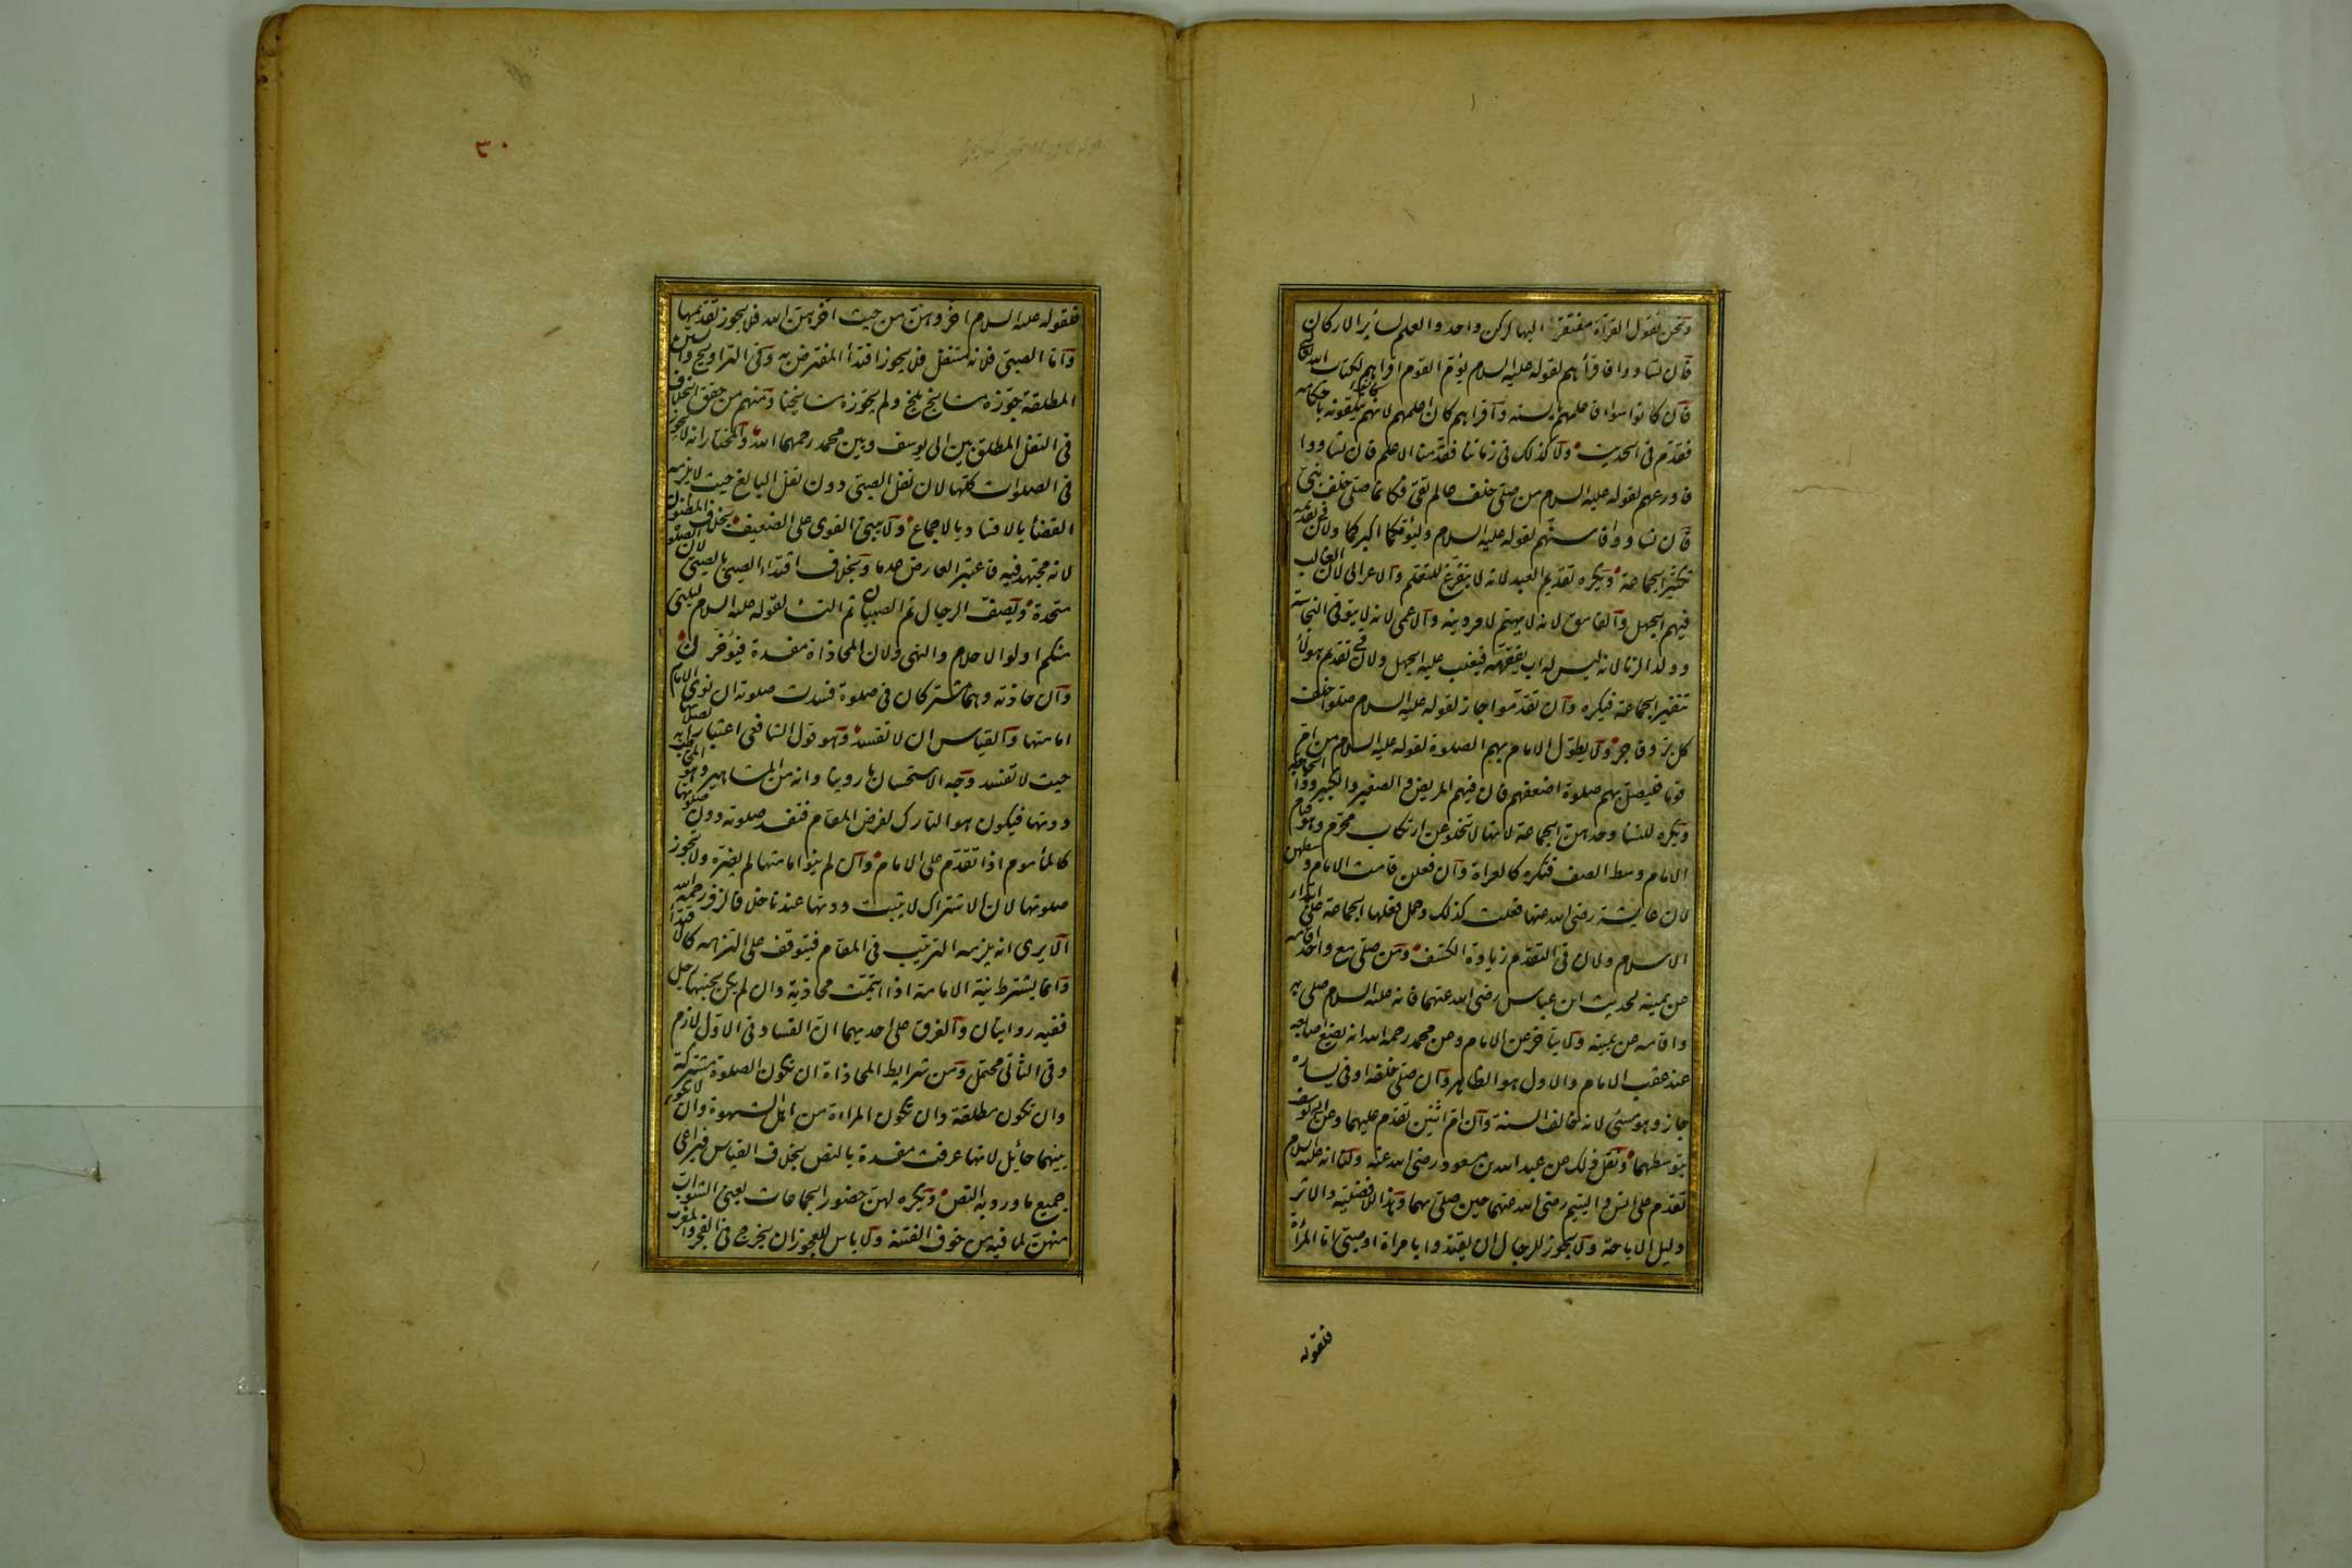 ونحن نقول القرأة مفتقرة اليها لركن واحد والعلم لسائر الاركان
فان تساووا فاقرأهم لقوله عليه السلام يؤم القوم اقرأهم لكتاب الله تعالى
فان كانوا سواء فاعلمهم بالسنة وأقرأهم كان اعلمهم لانهم كانوا يتلقونه باحكامه
فقدم فى الحديث ولا كذلك فى زماننا فقدمنا الاعلم فان تساووا
فاورعهم لقوله عليه السلام من صلى خلف عالم تقى فكانما صلى خلف نبى
فان تساووا فاسنهم لقوله عليه السلام وليؤمكما اكبركما ولان فى تقديمه
تكثير الجماعة ويكره تقديم العبد لانه لا يتفرغ للتعلم والاعرابى لان الغالب
فيهم الجهل والفاسق لانه لا يهتم لامر دينه والاعمى لانه لا يتوقى النجاسة
وولد الزنا لانه ليس له اب يفقهه فيغلب عليه الجهل ولان فى تقديم هؤلاء
تنفير الجماعة فيكره وان تقدموا جاز لقوله عليه السلام صلوا خلف
كل بر وفاجر ولا يطول الامام بهم الصلوة لقوله عليه السلام من ام
قوما فليصل بهم صلوة اضعفهم فان فيهم المريض والصغير والكبير وذا الحاجة
ويكره للنساء وحدهن الجماعة لانها لا تخلو عن ارتكاب محرم وهو قيام
الامام وسط الصف فتكره كالعراة وان فعلن قامت الامام وسطهن
لان عايشة رضى الله عنها فعلت كذلك وحمل فعلها الجماعة على ابتداء
الاسلام ولان فى التقدم زيادة الكشف ومن صلى مع واحد اقامه
عن يمينه لحديث ابن عباس رضى الله عنهما فانه عليه السلام صلى به
واقامه عن يمينه ولا يتأخر عن الامام وعن محمد رحمه الله انه يضع اصابعه
عند عقب الامام والاول هو الظاهر وان صلى خلفه او فى يساره
جاز وهو مسئ لانه خالف السنة وان ام اثنين تقدم عليهما وعن ابى يوسف
يتوسطهما ونقل ذلك عن عبد الله بن مسعود رضى الله عنه ولنا انه عليه السلام
تقدم على انس واليتيم رضى الله عنهما حين صلى بهما وهذا للافضلية والاثر
دليل الاباحة ولا يجوز للرجال ان يقتدوا بامراة او صبى اما المرأة
فلقوله
٣٠
فلقوله عليه السلام اخروهن من حيث اخرهن الله فلا يجوز تقديمها
واما الصبى فلانه متنفل فلا يجوز اقتدأ المفترض به وفى التراويح والسنن
المطلقة جوزه مشايخ بلخ ولم يجوزه مشايخنا ومنهم من حقق الخلاف
فى النفل المطلق بين ابى يوسف وبين محمد رحمهما الله والمختار انه لا يجوز
فى الصلوات كلها لان نفل الصبى دون نفل البالغ حيث لا يلزمه
القضأ بالافساد بالاجماع ولا يبنى القوى على الضعيف بخلاف المظنون
لانه مجتهد فيه فاعتبر العارض عدما وبخلاف اقتداء الصبى بالصبى لان الصلوة
متحدة ويصف الرجال ثم الصبيان ثم النساء لقوله عليه السلام ليلينى
منكم اولوا الاحلام والنهى ولان المحاذاة مفسدة فيؤخرن
وان حاذته وهما مشتركان فى صلوة فسدت صلوته ان نوى الامام
امامتها والقياس ان لا تفسد وهو قول الشافعى اعتبارا بصلوتها
حيث لا تفسد وجه الاستحسان ما روينا وانه من المشاهير وهو المخاطب به
دونها فيكون هو التارك لفرض المقام فتفسد صلوته دون صلوتها
كالمأموم اذا تقدم على الامام وان لم ينو امامتها لم يضره ولا تجوز
صلوتها لان الاشتراك لا يثبت دونها عندنا خلافا لزفر رحمه الله
الا يرى انه يلزمه الترتيب فى المقام فيتوقف على التزامه كالاقتدأ
وانما يشترط نية الامامة اذا ايتمت محاذية وان لم يكن بجنبها رجل
ففيه روايتان والفرق على احديهما ان الفساد فى الاول لازم
وفى الثانى محتمل ومن شرايط المحاذاة ان تكون الصلوة مشتركة
وان تكون مطلقة وان تكون المراءة من اهل الشهوة وان لا يكون
بينهما حائل لانها عرفت مفسدة بالنص بخلاف القياس فيراعى
جميع ما ورد به النص ويكره لهن حضور الجماعات يعنى الشواب
منهن لما فيه من خوف الفتنة ولا باس للعجوز ان يخرج فى الفجر والمغرب